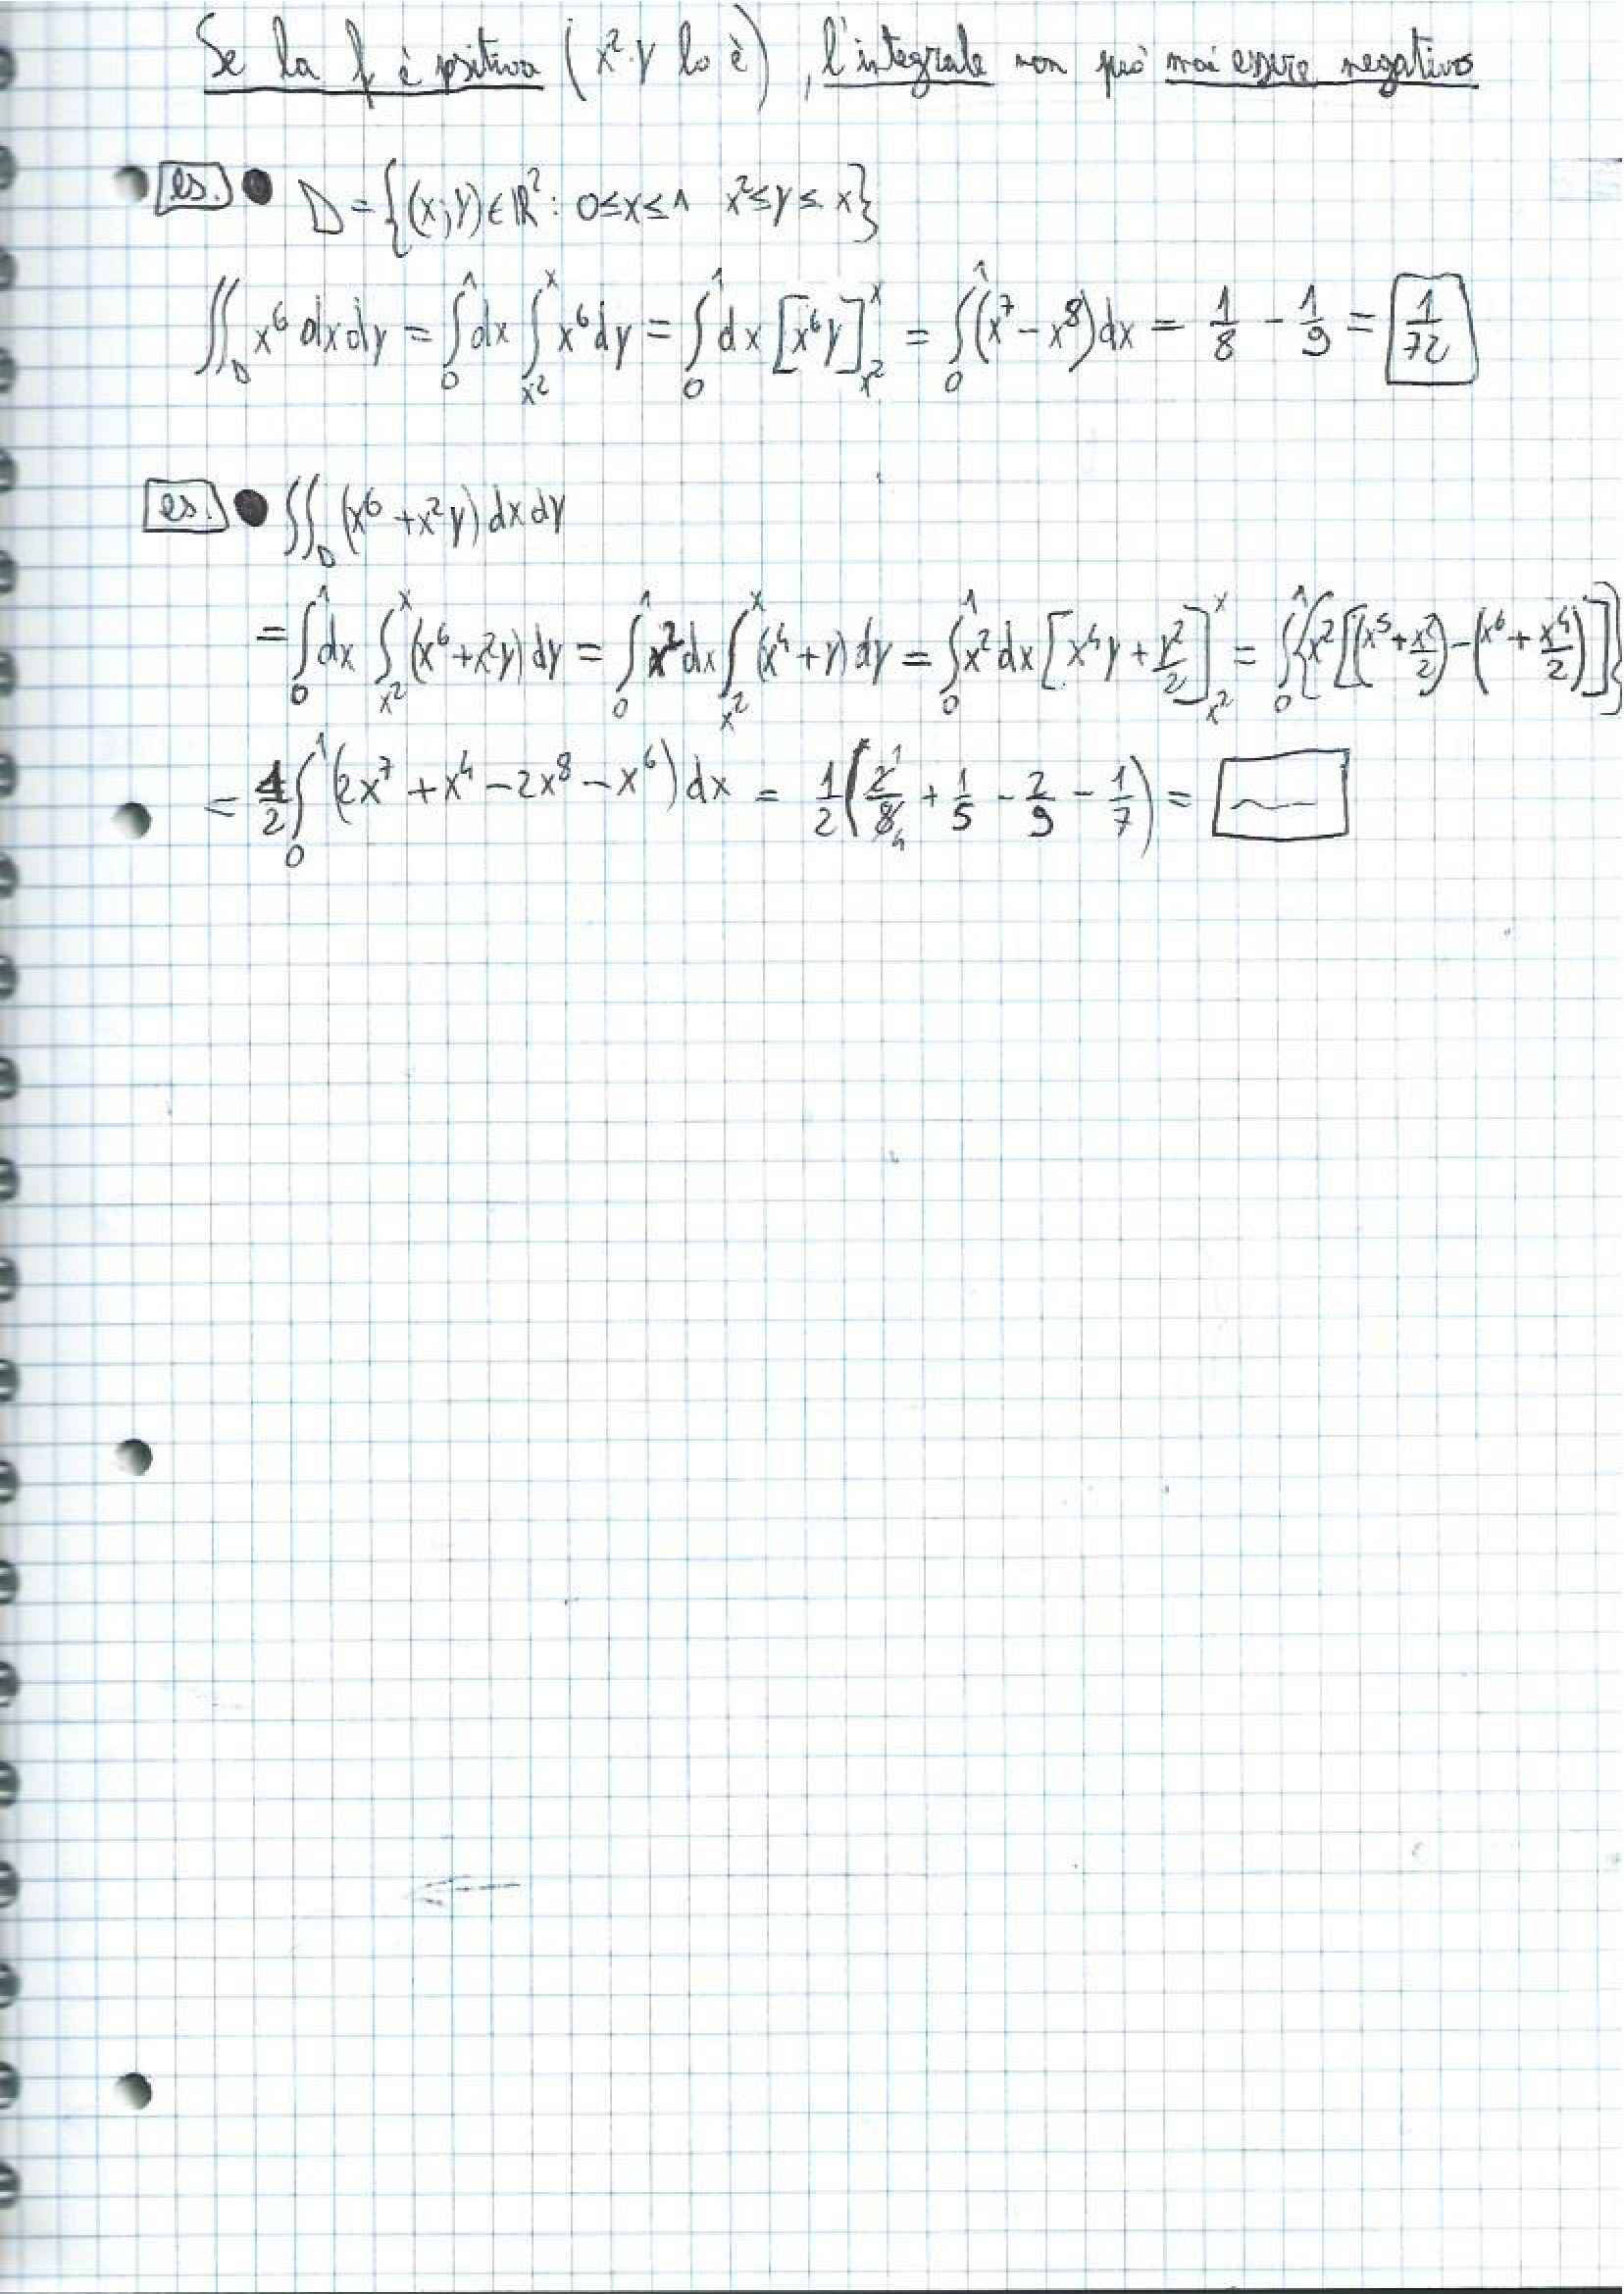 Se la f è positiva (x²·y lo è), l'integrale non può mai essere negativo
es. • D = {(x;y) ∈ ℝ² : 0≤x≤1 x²≤y≤x}
∬_D x⁶ dx dy = ∫₀¹ dx ∫_{x²}^{x} x⁶ dy = ∫₀¹ dx [x⁶y]_{x²}^{x} = ∫₀¹ (x⁷ - x⁸) dx = 1/8 - 1/9 = 1/72
es. • ∬_D (x⁶ + x²y) dx dy
= ∫₀¹ dx ∫_{x²}^{x} (x⁶ + x²y) dy = ∫₀¹ x² dx ∫_{x²}^{x} (x⁴ + y) dy = ∫₀¹ x² dx [x⁴y + y²/2]_{x²}^{x} = ∫₀¹ {x² [(x⁵ + x²/2) - (x⁶ + x⁴/2)]}
= 1/2 ∫₀¹ (2x⁷ + x⁴ - 2x⁸ - x⁶) dx = 1/2 (2̸¹/8̸₄ + 1/5 - 2/9 - 1/7) = ~